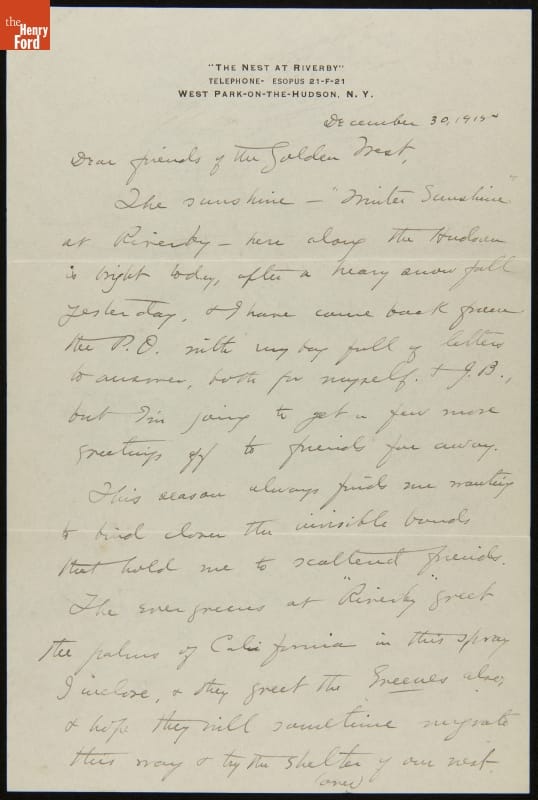 the Henry Ford
"THE NEST AT RIVERBY"
TELEPHONE- ESOPUS 21-F-21
WEST PARK-ON-THE-HUDSON, N. Y.
December 30, 1915
Dear friends of the Golden West,
The sunshine - "Winter Sunshine"
at Riverby - here along the Hudson
is bright today, after a heavy snow fall
yesterday, & I have come back from
the P.O. with my bag full of letters
to answer, both for myself & J.B.,
but I'm going to get a few more
greetings off to friends far away.
This season always finds me wanting
to bind closer the invisible bonds
that hold me to scattered friends.
The evergreens at "Riverby" greet
the palms of California in this spray
I inclose, & they greet the Greenes also,
& hope they will sometime migrate
this way & try the shelter of our nest.
(over)